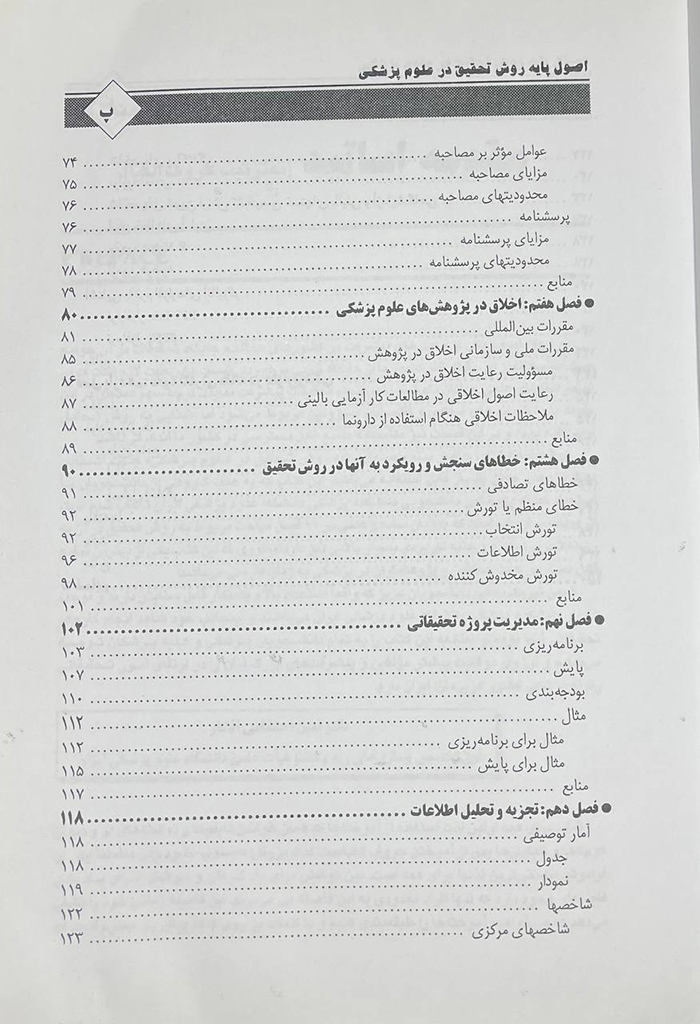 اصول پایه روش تحقیق در علوم پزشکی
پ
عوامل مؤثر بر مصاحبه ۷۴
مزایای مصاحبه ۷۵
محدودیتهای مصاحبه ۷۶
پرسشنامه ۷۶
مزایای پرسشنامه ۷۷
محدودیتهای پرسشنامه ۷۸
منابع ۷۹
● فصل هفتم: اخلاق در پژوهش‌های علوم پزشکی ۸۰
مقررات بین‌المللی ۸۱
مقررات ملی و سازمانی اخلاق در پژوهش ۸۵
مسؤولیت رعایت اخلاق در پژوهش ۸۶
رعایت اصول اخلاقی در مطالعات کار آزمایی بالینی ۸۷
ملاحظات اخلاقی هنگام استفاده از دارونما ۸۸
منابع ۸۹
● فصل هشتم: خطاهای سنجش و رویکرد به آنها در روش تحقیق ۹۰
خطاهای تصادفی ۹۱
خطای منظم یا تورش ۹۲
تورش انتخاب ۹۲
تورش اطلاعات ۹۶
تورش مخدوش کننده ۹۸
منابع ۱۰۱
● فصل نهم: مدیریت پروژه تحقیقاتی ۱۰۲
برنامه‌ریزی ۱۰۳
پایش ۱۰۷
بودجه‌بندی ۱۱۰
مثال ۱۱۲
مثال برای برنامه‌ریزی ۱۱۲
مثال برای پایش ۱۱۵
منابع ۱۱۷
● فصل دهم: تجزیه و تحلیل اطلاعات ۱۱۸
آمار توصیفی ۱۱۸
جدول ۱۱۸
نمودار ۱۱۹
شاخصها ۱۲۲
شاخصهای مرکزی ۱۲۳